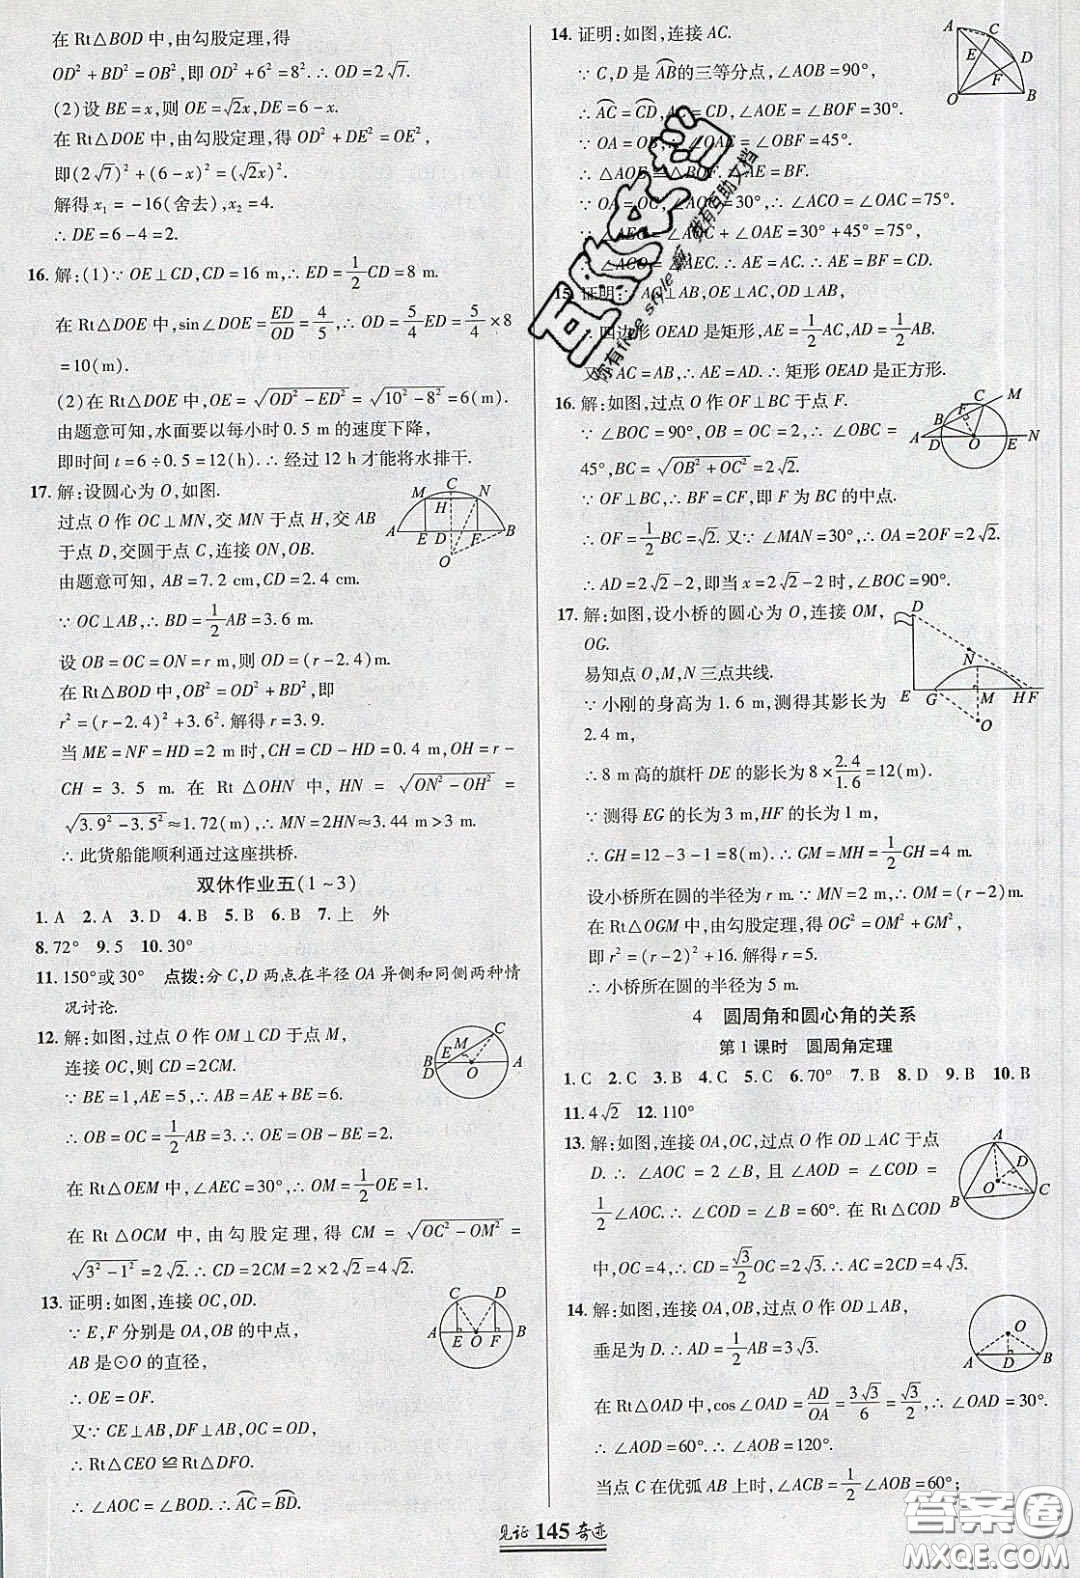 在 Rt△BOD 中,由勾股定理,得
OD²+BD²=OB²,即 OD²+6²=8².∴OD=2√7.
(2)设 BE=x,则 OE=√2x,DE=6-x.
在 Rt△DOE 中,由勾股定理,得 OD²+DE²=OE²,
即(2√7)²+(6-x)²=(√2x)².
解得 x₁=-16(舍去),x₂=4.
∴DE=6-4=2.
16. 解:(1)∵OE⊥CD,CD=16 m,∴ED=1/2CD=8 m.
在 Rt△DOE 中,sin∠DOE=ED/OD=4/5,∴OD=5/4ED=5/4×8
=10(m).
(2)在 Rt△DOE 中,OE=√(OD²-ED²)=√(10²-8²)=6(m).
由题意可知,水面要以每小时 0.5 m 的速度下降,
即时间 t=6÷0.5=12(h).∴经过 12 h 才能将水排干.
17. 解:设圆心为 O,如图.
过点 O 作 OC⊥MN,交 MN 于点 H,交 AB
于点 D,交圆于点 C,连接 ON,OB.
由题意可知,AB=7.2 cm,CD=2.4 cm.
∵OC⊥AB,∴BD=1/2AB=3.6 m.
设 OB=OC=ON=r m,则 OD=(r-2.4)m.
在 Rt△BOD 中,OB²=OD²+BD²,即
r²=(r-2.4)²+3.6².解得 r=3.9.
当 ME=NF=HD=2 m 时,CH=CD-HD=0.4 m,OH=r-
CH=3.5 m.在 Rt△OHN 中,HN=√(ON²-OH²)=
√(3.9²-3.5²)≈1.72(m),∴MN=2HN≈3.44 m>3 m.
∴此货船能顺利通过这座拱桥.
M C N
H
A E D F B
O
双休作业五(1~3)
1. A 2. A 3. D 4. B 5. B 6. B 7. 上 外
8. 72° 9. 5 10. 30°
11. 150°或 30° 点拨:分 C,D 两点在半径 OA 异侧和同侧两种情
况讨论.
12. 解:如图,过点 O 作 OM⊥CD 于点 M,
连接 OC,则 CD=2CM.
∵BE=1,AE=5,∴AB=AE+BE=6.
∴OB=OC=1/2AB=3.∴OE=OB-BE=2.
在 Rt△OEM 中,∠AEC=30°,∴OM=1/2OE=1.
在 Rt△OCM 中,由勾股定理,得 CM=√(OC²-OM²)=
√(3²-1²)=2√2.∴CD=2CM=2×2√2=4√2.
C
M
B E O A
D
13. 证明:如图,连接 OC,OD.
∵E,F 分别是 OA,OB 的中点,
AB 是⊙O 的直径,
∴OE=OF.
又∵CE⊥AB,DF⊥AB,OC=OD,
∴Rt△CEO≌Rt△DFO.
∴∠AOC=∠BOD.∴AC=BD.
C D
A E O F B
14. 证明:如图,连接 AC.
∵C,D 是 AB的三等分点,∠AOB=90°,
∴AC=CD,∴AC=CD,∠AOE=∠BOF=30°.
∵OA=OB,∴∠OAE=∠OBF=45°.
∴△AOE≌△BOF.∴AE=BF.
∵OA=OC,∠AOE=30°,∴∠ACO=∠OAC=75°.
∵∠AEC=∠AOC+∠OAE=30°+45°=75°,
∴∠ACO=∠AEC.∴AC=AE.∴AE=BF=CD.
A C
D
E
F
O B
15. 证明:∵AC⊥AB,OE⊥AC,OD⊥AB,
∴四边形 OEAD 是矩形,AE=1/2AC,AD=1/2AB.
又∵AC=AB,∴AE=AD.∴矩形 OEAD 是正方形.
16. 解:如图,过点 O 作 OF⊥BC 于点 F.
∵∠BOC=90°,OB=OC=2,∴∠OBC=∠OCB=
45°,BC=√(OB²+OC²)=2√2.
∵OF⊥BC,∴BF=CF,即 F 为 BC 的中点.
∴OF=1/2BC=√2.又∵∠MAN=30°,∴OA=2OF=2√2.
∴AD=2√2-2,即当 x=2√2-2 时,∠BOC=90°.
C M
B F
A D O E N
17. 解:如图,设小桥的圆心为 O,连接 OM,
OG.
易知点 O,M,N 三点共线.
∵小刚的身高为 1.6 m,测得其影长为
2.4 m,
∴8 m 高的旗杆 DE 的影长为 8×2.4/1.6=12(m).
∵测得 EG 的长为 3 m,HF 的长为 1 m,
∴GH=12-3-1=8(m).∴GM=MH=1/2GH=4 m.
设小桥所在圆的半径为 r m.∵MN=2 m,∴OM=(r-2)m.
在 Rt△OGM 中,由勾股定理,得 OG²=OM²+GM²,
即 r²=(r-2)²+16.解得 r=5.
∴小桥所在圆的半径为 5 m.
D
N
E G M H F
O
4 圆周角和圆心角的关系
第 1 课时 圆周角定理
1. C 2. C 3. B 4. C 5. C 6. 70° 7. B 8. D 9. B 10. B
11. 4√2 12. 110°
13. 解:如图,连接 OA,OC,过点 O 作 OD⊥AC 于点
D.∴∠AOC=2∠B,且∠AOD=∠COD=
1/2∠AOC.∴∠COD=∠B=60°.在 Rt△COD
中,OC=4,∴CD=√3/2OC=2√3.∴AC=2CD=4√3.
A
D
O
B C
14. 解:如图,连接 OA,OB,过点 O 作 OD⊥AB,
垂足为 D.∴AD=1/2AB=3√3.
在 Rt△OAD 中,cos∠OAD=AD/OA=3√3/6=√3/2,∴∠OAD=30°.
∴∠AOD=60°.∴∠AOB=120°.
当点 C 在优弧 AB 上时,∠ACB=1/2∠AOB=60°;
O
A D B
见证 145 奇迹
答案圈
MXQE.COM